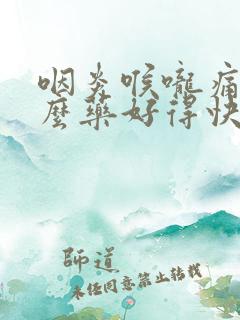 咽炎喉嚨痛
麼藥好得快
師道
未任同意禁止轉載